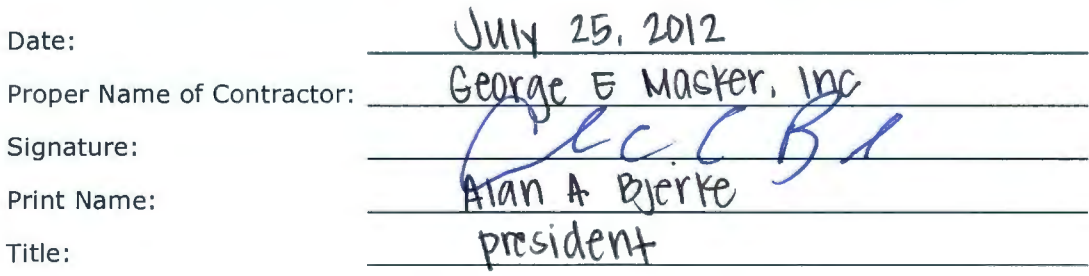 Date: July 25, 2012
Proper Name of Contractor: George E Masker, Inc
Signature:
Print Name: Alan A Bjerke
Title: president